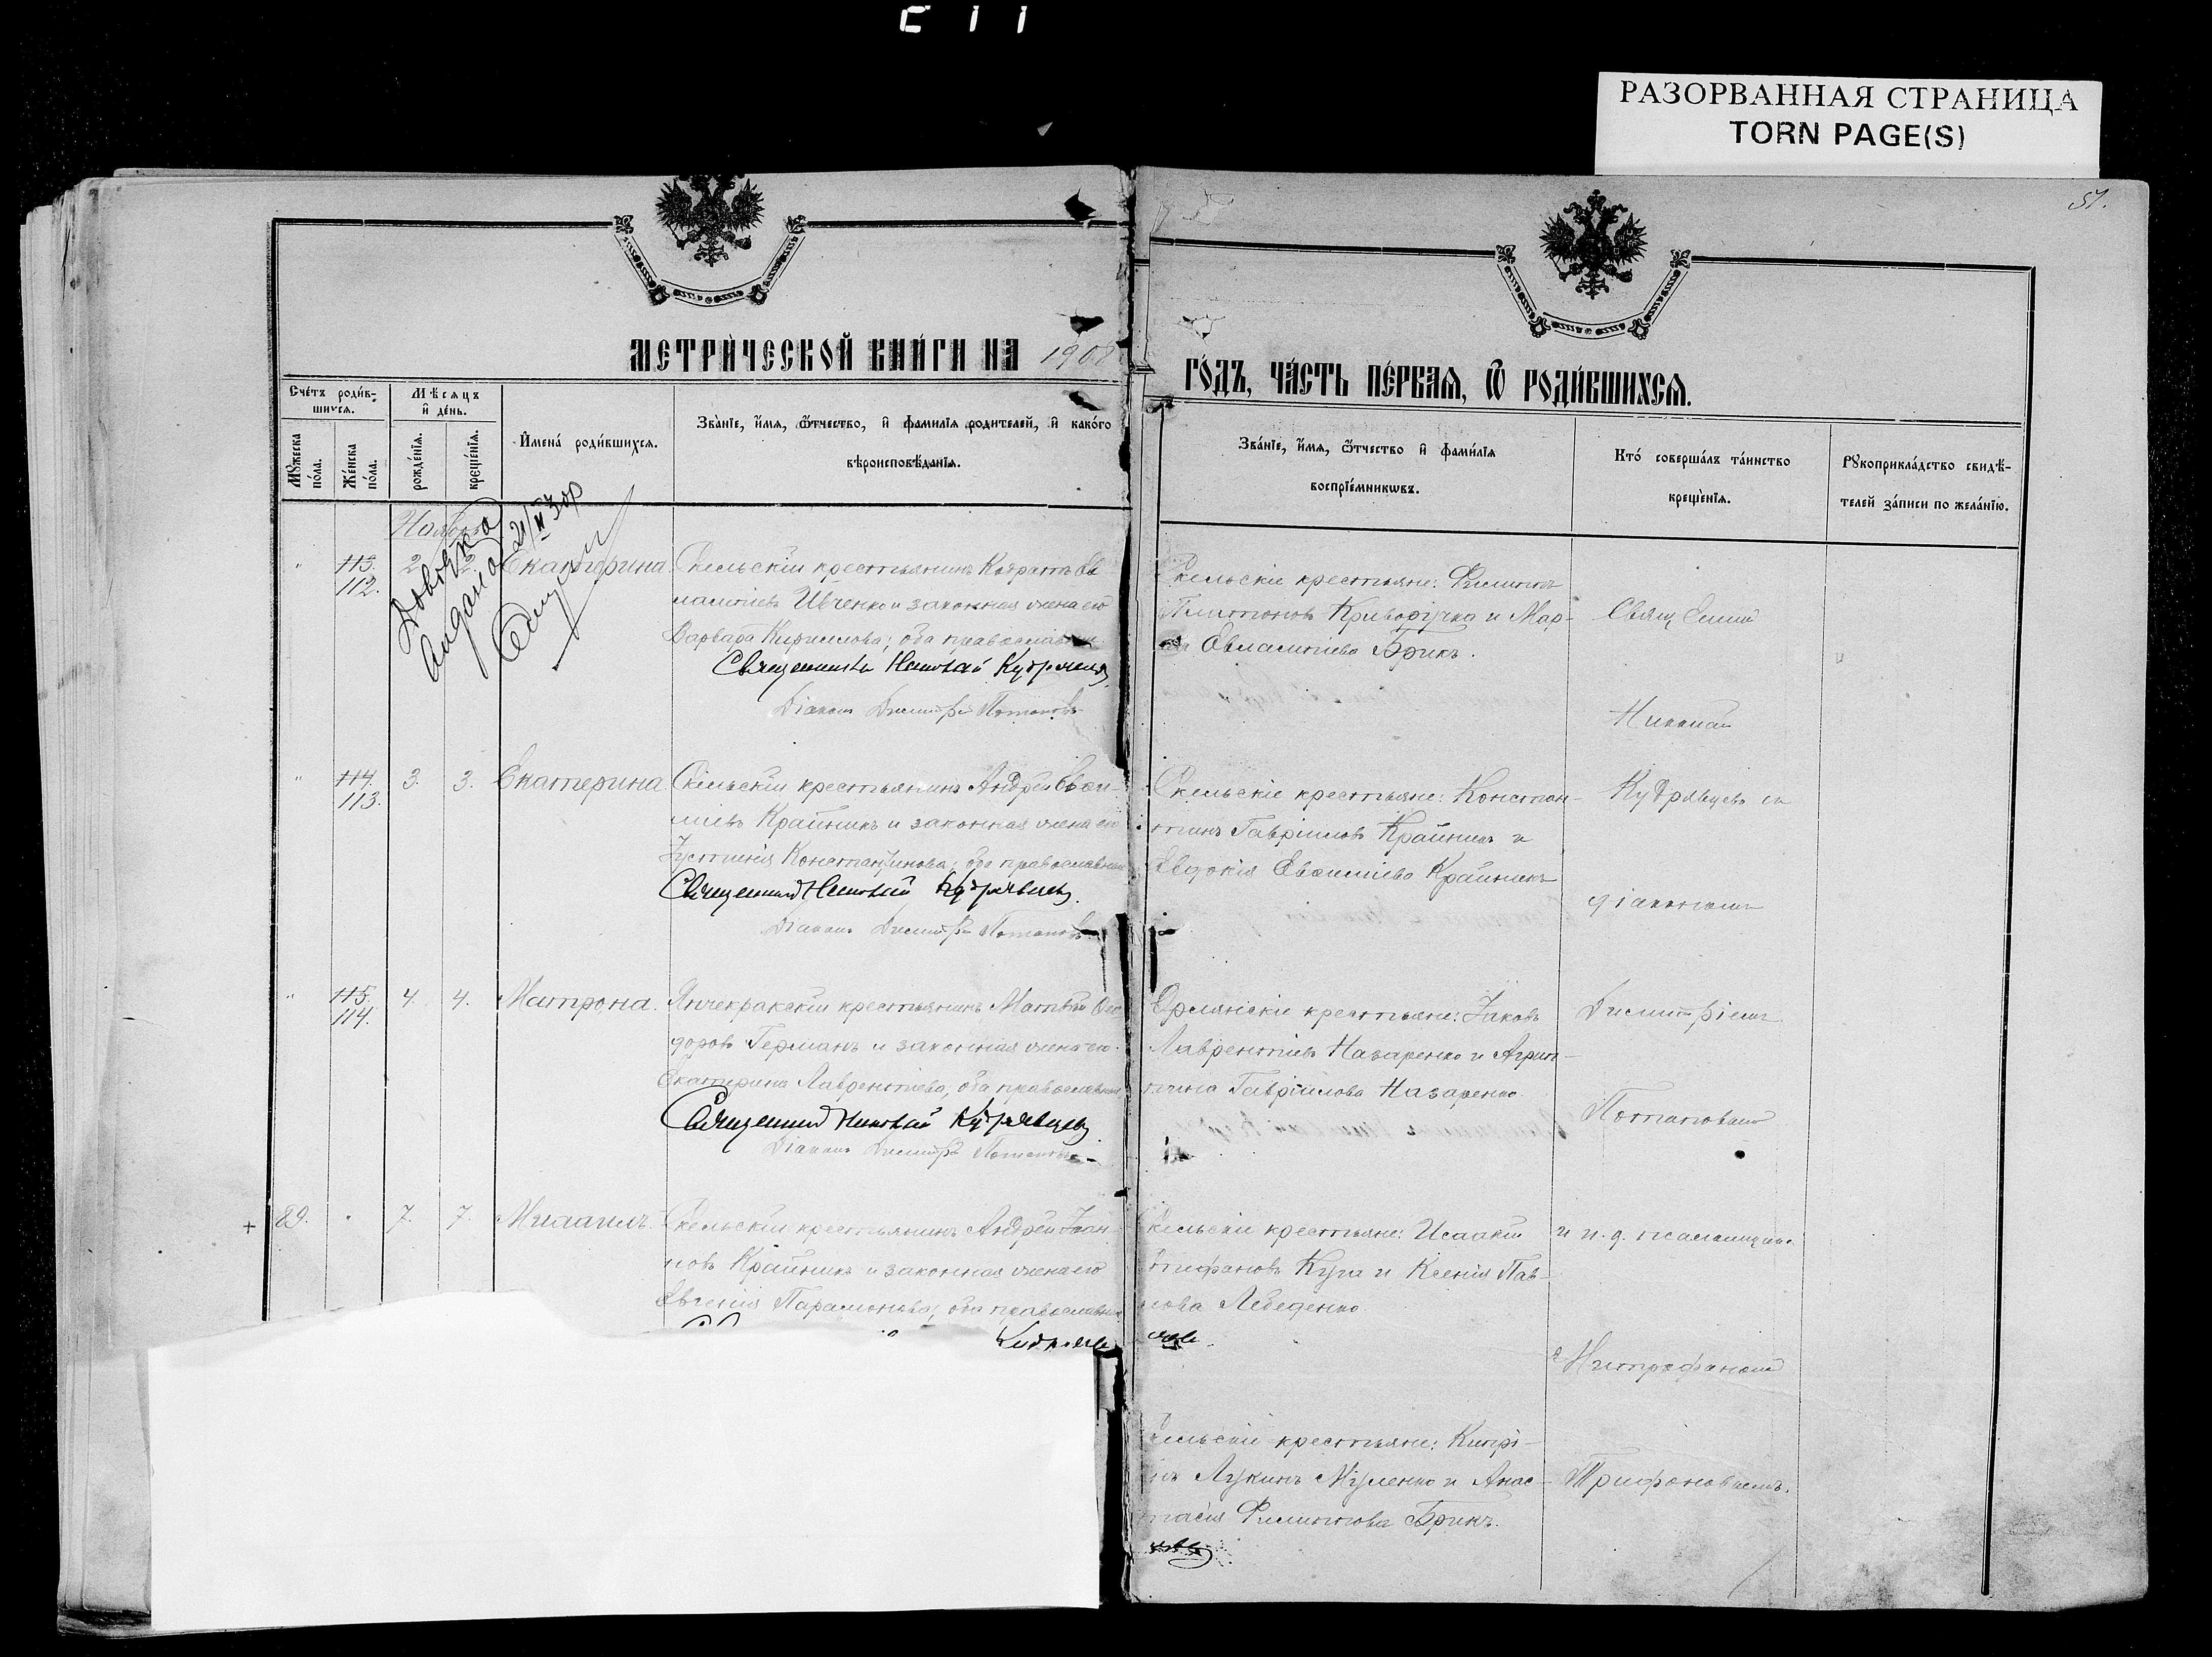 РАЗОРВАННАЯ СТРАНИЦА
TORN PAGE(S)
51.
МЕТРИ́ЧЕСКОЙ КНИ́ГИ НА 1908
ГО́ДЪ, ЧА́СТЬ ПЕ́РВАѦ, Ѽ РОДИ́ВШИХСѦ.
Сче́тъ роди́в-
шихся.
Мѣсяцъ
и҆ де́нь.
Мꙋ́жеска по́ла.
Же́нска по́ла.
рожде́нїѧ.
креще́нїѧ.
И҆мена́ роди́вшихсѧ.
Зва́нїе, и҆́мѧ, ѻ҆́тчество, и҆ фамилїѧ родителей, и҆ како́го
вѣроисповѣ́данїѧ.
Зва́нїе, и҆́мѧ, ѻ҆́тчество и҆ фами́лїѧ
воспрїе́мникѡвъ.
Кто́ соверша́лъ та́инство
креще́нїѧ.
Рꙋкоприкла́дство свидѣ́-
телей за́писи по жела́нїю.
Ноябрь
113. 2. 2. Екатерина. Скельскій крестьянинъ Кодратъ Ев
112.
лампіевъ Ивченко и законная жена его
Варвара Кириллова; оба православн
Священникъ Николай Кудрявцев
Діаконъ Димитрій Потаповъ
Скельскіе крестьяне: Филиппъ
Платоновъ Криворучка и Мар-
Евлампіева Брикъ.
Свящ
Николай
114. 3. 3. Екатерина Скельскій крестьянинъ Андрей Евѳи-
113.
міевъ Крайникъ и законная жена его
Іустинія Константинова; оба православные
Священник Николай Кудрявцев.
Діаконъ Димитрій Потаповъ
Скельскіе крестьяне: Констан-
тинъ Гавріиловъ Крайникъ и
Евдокія Евѳиміева Крайникъ
Кудрявцевъ съ
діакономъ
115. 4. 4. Матрона. Янчекракскій крестьянинъ Матѳей Ѳео
114.
доровъ Германъ и законная жена его
Екатерина Лаврентіева, оба православные
Священник Николай Кудрявцев
Діаконъ Димитрій Потаповъ
Орлянскіе крестьяне: Іаковъ
Лаврентіевъ Назаренко и Агрип-
пина Гавріилова Назаренко
Димитріемъ
Потаповымъ
+ 89. 7. 7. Михаилъ. Скельскій крестьянинъ Андрей Іоан-
новъ Крайникъ и законная жена его
Евгенія Парамонова; оба православные
Кудрявц
Скельскіе крестьяне: Исаакій
Епифановъ Куца и Ксенія Пав-
лова Лебеденко
и и. д. псаломщика
Митрофаномъ
кельскіе крестьяне: Кипрі-
нъ Лукинъ Муленко и Анас-
тасія Филиппова Брикъ.
Трифоновымъ.